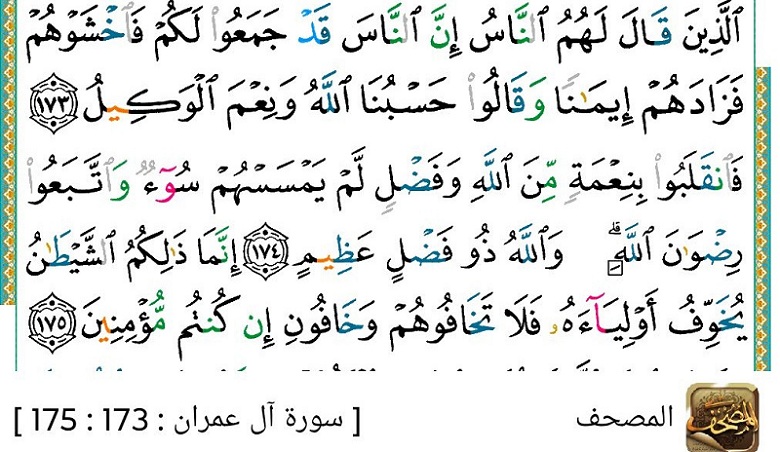 ٱلَّذِينَ قَالَ لَهُمُ ٱلنَّاسُ إِنَّ ٱلنَّاسَ قَدۡ جَمَعُواْ لَكُمۡ فَٱخۡشَوۡهُمۡ
فَزَادَهُمۡ إِيمَٰنٗا وَقَالُواْ حَسۡبُنَا ٱللَّهُ وَنِعۡمَ ٱلۡوَكِيلُ ١٧٣
فَٱنقَلَبُواْ بِنِعۡمَةٖ مِّنَ ٱللَّهِ وَفَضۡلٖ لَّمۡ يَمۡسَسۡهُمۡ سُوٓءٞ وَٱتَّبَعُواْ
رِضۡوَٰنَ ٱللَّهِۗ وَٱللَّهُ ذُو فَضۡلٍ عَظِيمٍ ١٧٤ إِنَّمَا ذَٰلِكُمُ ٱلشَّيۡطَٰنُ
يُخَوِّفُ أَوۡلِيَآءَهُۥ فَلَا تَخَافُوهُمۡ وَخَافُونِ إِن كُنتُم مُّؤۡمِنِينَ ١٧٥
المصحف [ سورة آل عمران : 173 : 175 ]
المصحف